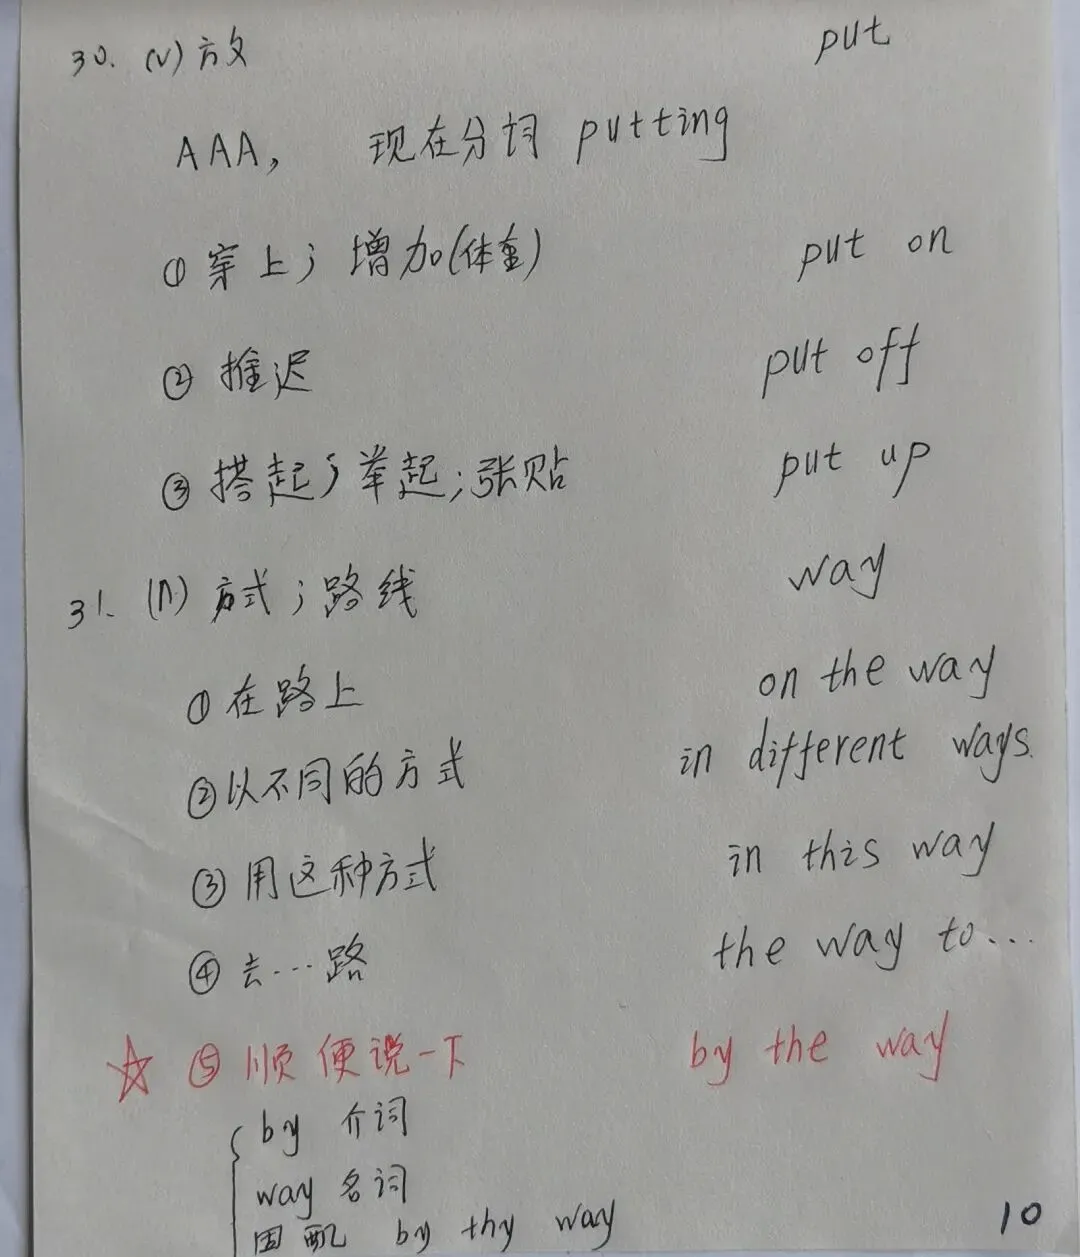 30. (v) 放 put
AAA, 现在分词 putting
① 穿上；增加(体重) put on
② 推迟 put off
③ 搭起；举起；张贴 put up
31. (n) 方式；路线 way
① 在路上 on the way
② 以不同的方式 in different ways.
③ 用这种方式 in this way
④ 去…路 the way to...
☆ ⑤ 顺便说一下 by the way
by 介词
way 名词
固配 by thy way
10